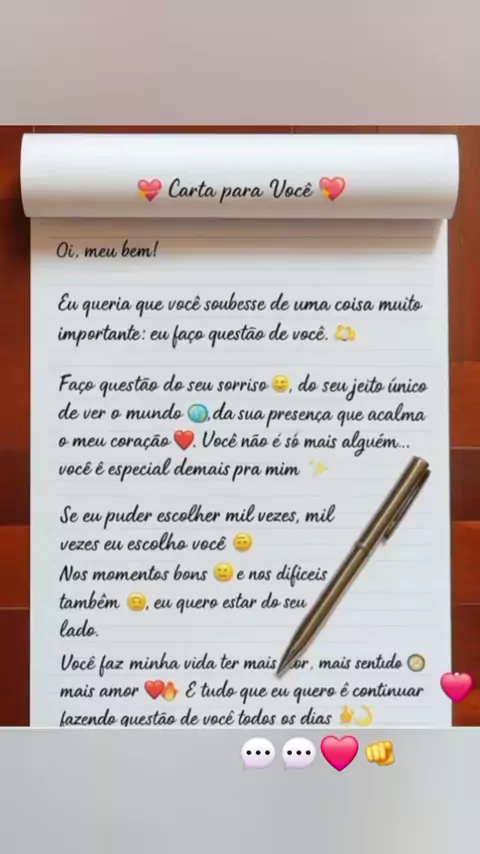 Carta para Você
Oi, meu bem!
Eu queria que você soubesse de uma coisa muito
importante: eu faço questão de você.
Faço questão do seu sorriso, do seu jeito único
de ver o mundo, da sua presença que acalma
o meu coração. Você não é só mais alguém...
você é especial demais pra mim
Se eu puder escolher mil vezes, mil
vezes eu escolho você
Nos momentos bons e nos difíceis
também, eu quero estar do seu
lado.
Você faz minha vida ter mais or, mais sentido
mais amor E tudo que eu quero é continuar
fazendo questão de você todos os dias